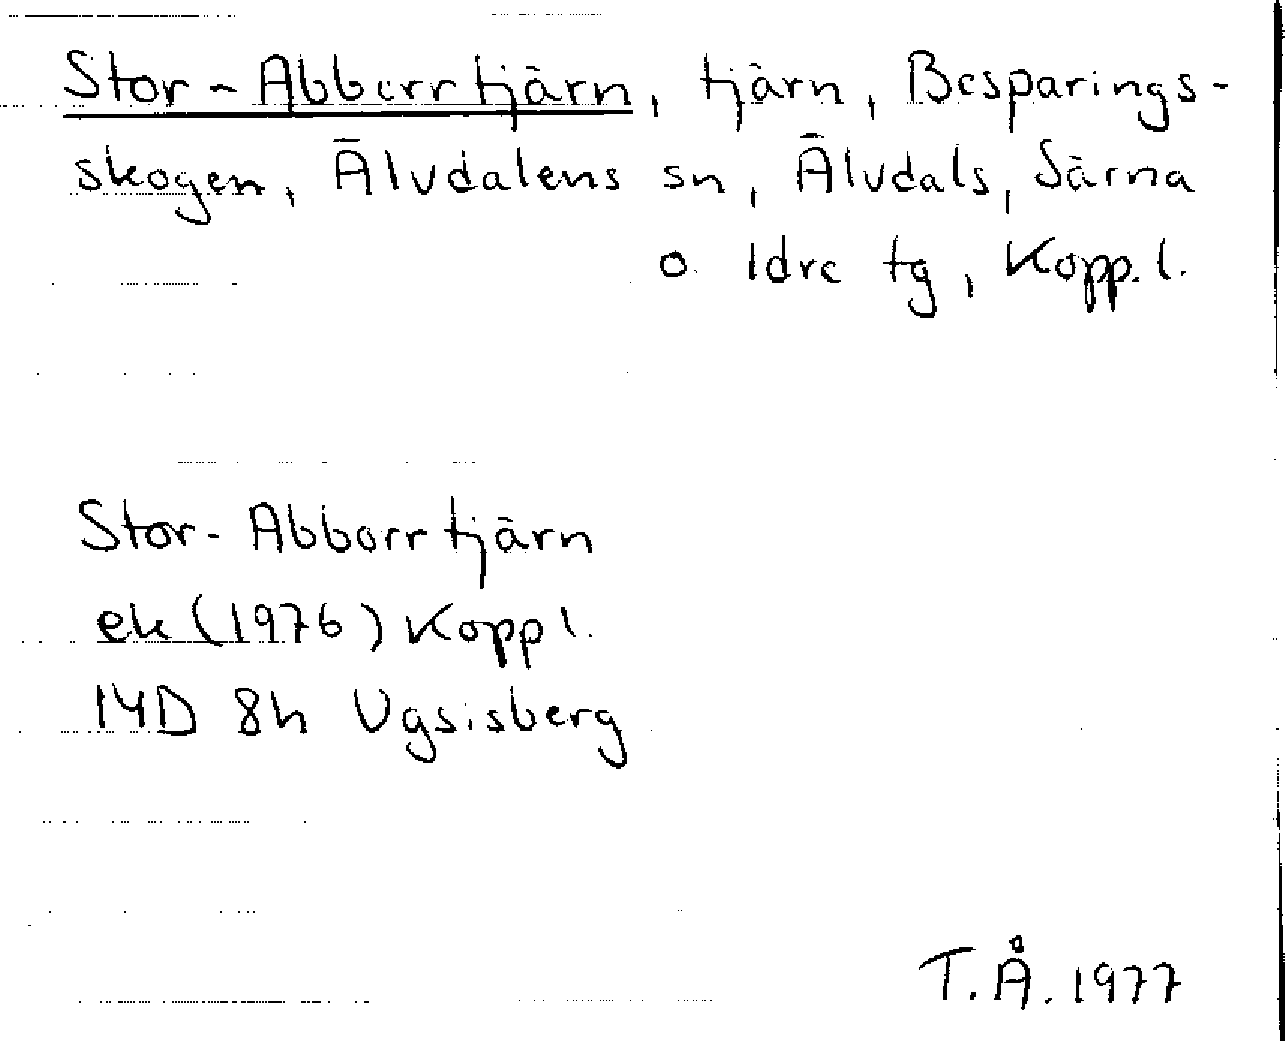 Stor-Abborrtjärn, tjärn, Besparings-
skogen, Älvdalens sn, Älvdals, Särna
o. Idre tg, Kopp. l.
Stor-Abborrtjärn
ek (1976) Kopp l.
14D 8h Ugsisberg
T.Å. 1977